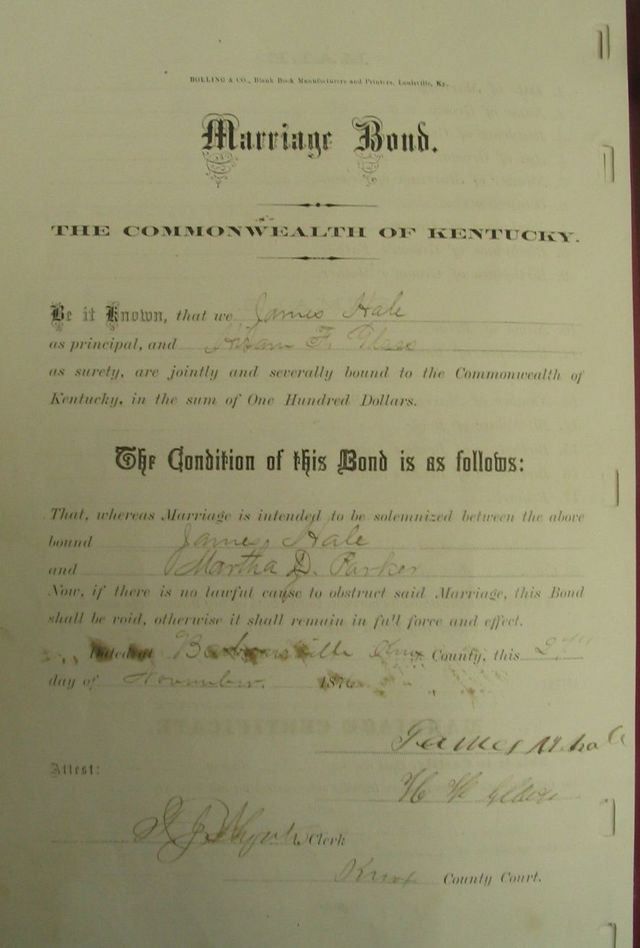 BOLLING & CO., Blank Book Manufacturers and Printers, Louisville, Ky.
Marriage Bond.
THE COMMONWEALTH OF KENTUCKY.
Be it Known, that we James Hale
as principal, and Hiram F.
as surety, are jointly and severally bound to the Commonwealth of
Kentucky, in the sum of One Hundred Dollars.
The Condition of this Bond is as follows:
That, whereas Marriage is intended to be solemnized between the above
bound James Hale
and Martha D. Parker
Now, if there is no lawful cause to obstruct said Marriage, this Bond
shall be void, otherwise it shall remain in full force and effect.
Dated at Barbourville Knox County, this
day of November 187
James M. hale
Attest:
H
Clerk
Knox County Court.